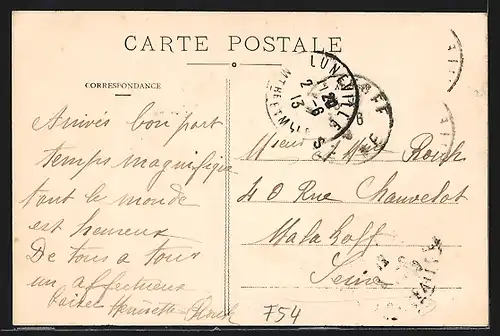 CARTE POSTALE
CORRESPONDANCE
Arrivés bon port
temps magnifique
tout le monde
est heureux
De tous a tous
un affectueux
baiser Henriette
LUNEVILLE
2 -6
13
Mme
40 Rue Chauvelot
Malakoff
Seine
F54